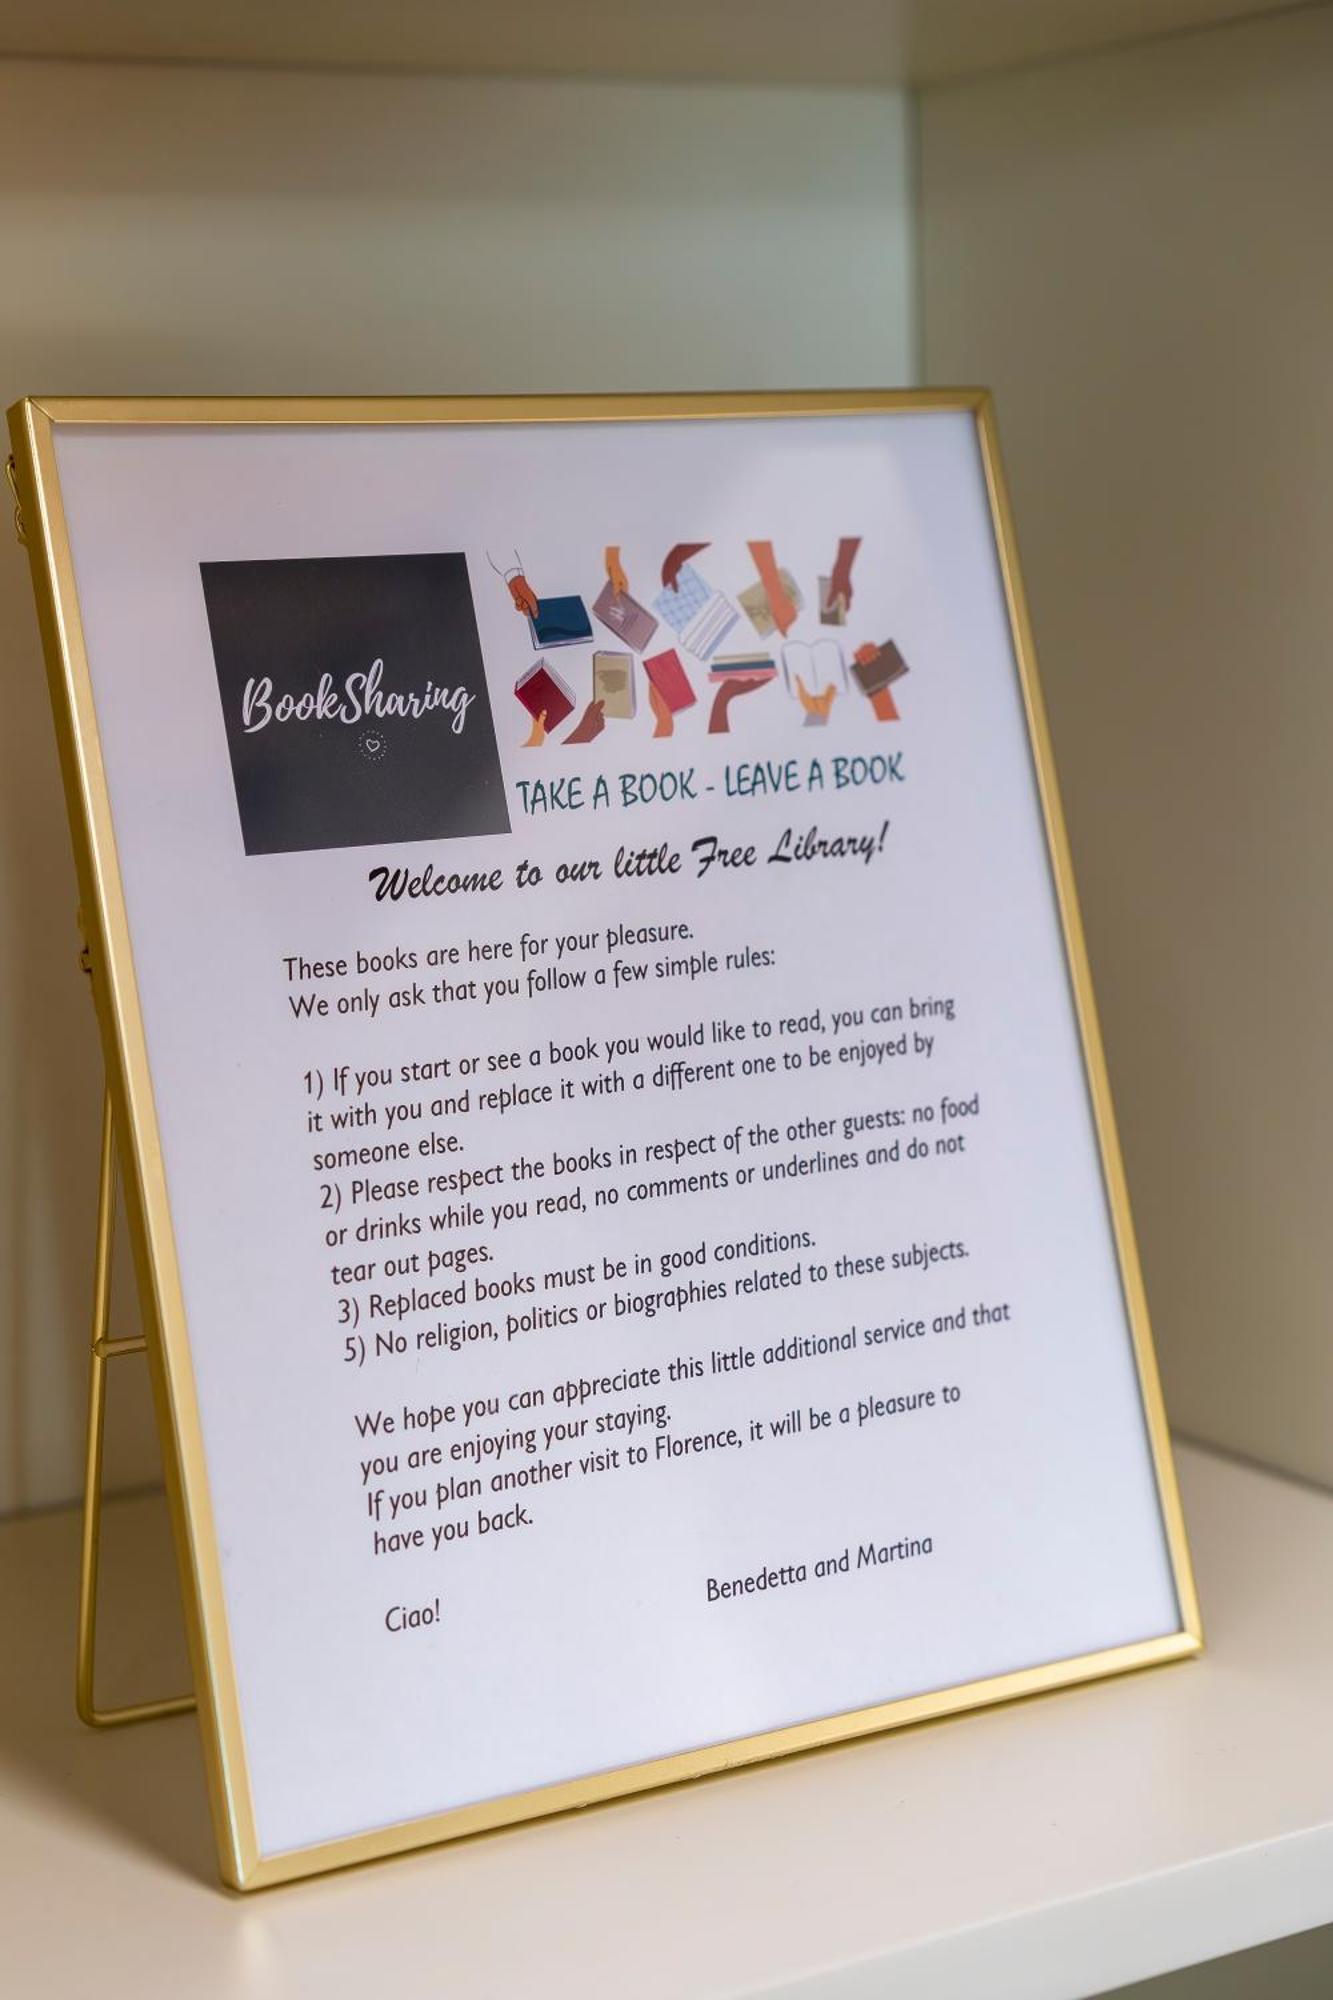 BookSharing
TAKE A BOOK - LEAVE A BOOK
Welcome to our little Free Library!
These books are here for your pleasure.
We only ask that you follow a few simple rules:
1) If you start or see a book you would like to read, you can bring
it with you and replace it with a different one to be enjoyed by
someone else.
2) Please respect the books in respect of the other guests: no food
or drinks while you read, no comments or underlines and do not
tear out pages.
3) Replaced books must be in good conditions.
5) No religion, politics or biographies related to these subjects.
We hope you can appreciate this little additional service and that
you are enjoying your staying.
If you plan another visit to Florence, it will be a pleasure to
have you back.
Benedetta and Martina
Ciao!